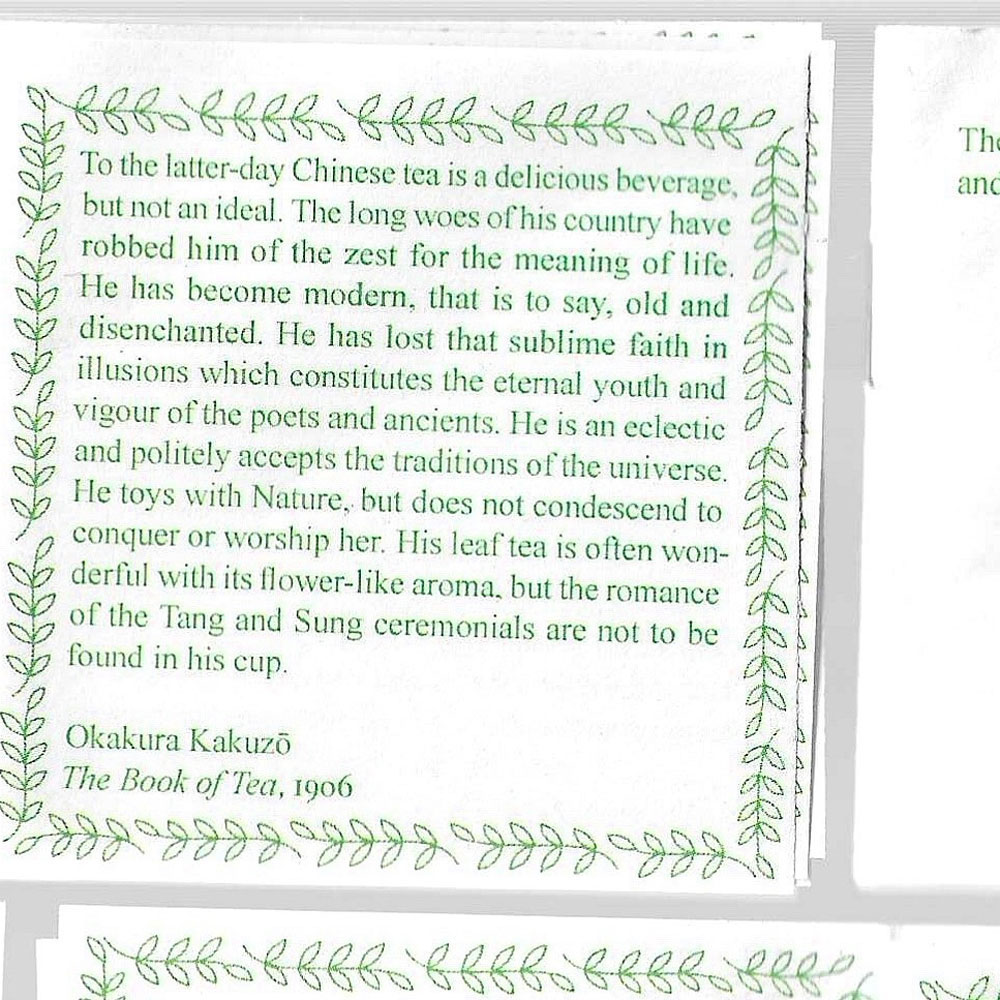 To the latter-day Chinese tea is a delicious beverage,
but not an ideal. The long woes of his country have
robbed him of the zest for the meaning of life.
He has become modern, that is to say, old and
disenchanted. He has lost that sublime faith in
illusions which constitutes the eternal youth and
vigour of the poets and ancients. He is an eclectic
and politely accepts the traditions of the universe.
He toys with Nature, but does not condescend to
conquer or worship her. His leaf tea is often won-
derful with its flower-like aroma, but the romance
of the Tang and Sung ceremonials are not to be
found in his cup.
Okakura Kakuzō
The Book of Tea, 1906
and